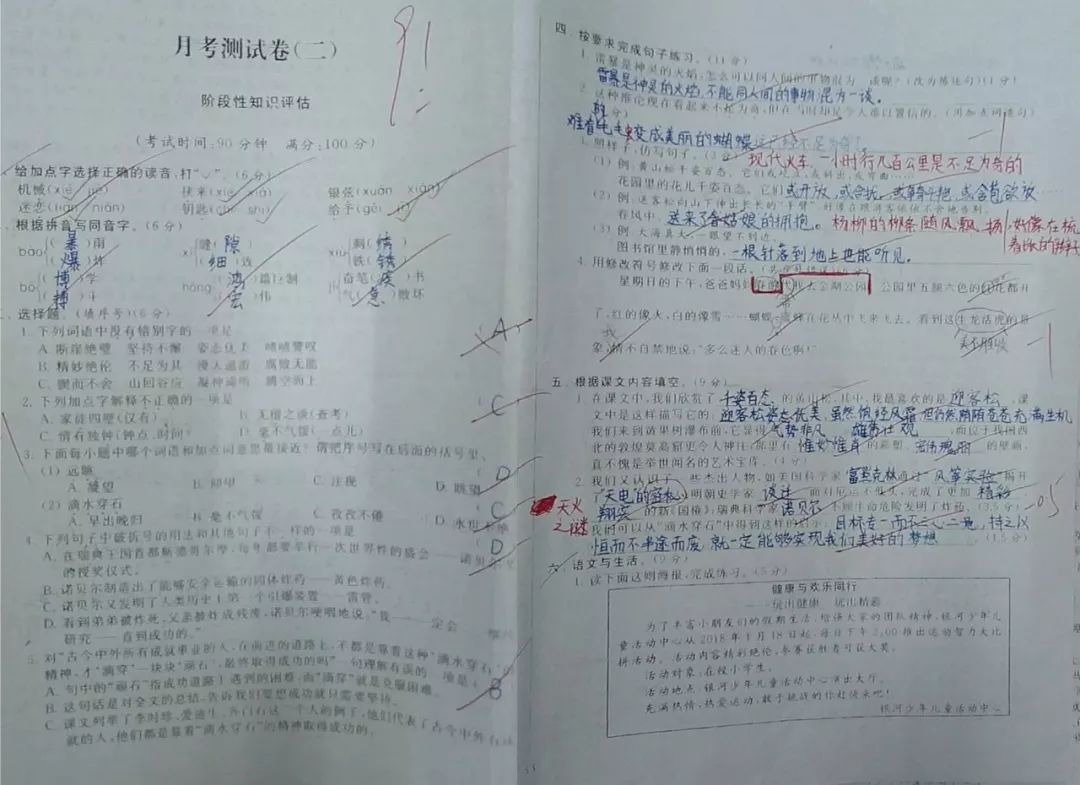 月考测试卷(二)
91
阶段性知识评估
(考试时间:90分钟 满分:100分)
给加点字选择正确的读音,打“✓”。(6分)
机械(xiè jiè) 扶来(xié xiá) 银弦(xuán xián)
迷恋(liàn niàn) 钥匙(chí shi) 给予(gěi jǐ)
根据拼音写同音字。(6分)
bào (暴)雨 xì 缝(隙) xiù 刺(绣)
(爆)炸 (细)致 铁(锈)
bó (博)学 hóng (鸿)篇巨制 jí 奋笔(疾)书
(搏)斗 (宏)伟 气(急)败坏
选择题。(填序号)(6分)
1. 下列词语中没有错别字的一项是 A
A. 断崖绝壁 坚持不懈 姿态优美 啧啧赞叹
B. 精妙绝伦 不足为其 漫天遨游 腐败无能
C. 锲而不舍 山回谷应 凝神谛听 腾空而上
2. 下列加点字解释不正确的一项是 C
A. 家徒四壁(仅有) B. 无稽之谈(查考)
C. 情有独钟(钟点,时间) D. 毫不气馁(一点儿)
3. 下面每小题中哪个词语和加点词意思最接近?请把序号写在后面的括号里。
(1) 远眺 D
A. 凝望 B. 仰望 C. 注视 D. 眺望
(2) 滴水穿石 C
A. 早出晚归 B. 毫不气馁 C. 孜孜不倦 D. 水
4. 下列句子中破折号的用法和其他句子不一样的一项是 D
A. 在瑞典王国首都斯德哥尔摩,每年都要举行一次世界性的盛会——诺贝尔
的授奖仪式。
B. 诺贝尔制造出了能够安全运输的固体炸药——黄色炸药。
C. 诺贝尔又发明了人类历史上第一个引爆装置——雷管。
D. 看到弟弟被炸死,父亲被炸成残废,诺贝尔哽咽地说:“我——定会
研究——直到成功的。”
5. 对“古今中外所有成就事业的人,在前进的道路上,不都是靠着这种‘滴水穿石’的
精神,才‘滴穿’一块块‘顽石’,最终取得成功的吗”一句理解有误的一项是 B
A. 句中的“顽石”指成功道路上遇到的困难,而“滴穿”就是克服困难。
B. 这句话是对全文的总结,告诉我们要想成功就只需要坚持。
C. 课文列举了李时珍、爱迪生、齐白石这三个人的例子,他们代表了古今中外有成
就的人,他们都是靠着“滴水穿石”的精神取得成功的。
四、按要求完成句子练习。(11分)
1. 雷暴是神灵的火焰,怎么可以同人间的事物混为一谈呢?(改为陈述句)(1分)
雷暴是神灵的火焰,不能同人间的事物混为一谈。
2. 这种推论现在看起来不足为奇,但在当时却是令人难以置信的。(用加点词造句)
难看的毛毛虫变成美丽的蝴蝶这已经不足为奇了。
现代火车,一小时行几百公里是不足为奇的
3. 照样子,仿写句子。(3分)
(1) 例:黄山松千姿百态。它们或屹立,或斜出,或弯曲……
花园里的花儿千姿百态。它们或开放,或含苞,或含苞欲放……
(2) 例:送客松向山下伸出长长的“手臂”,好像在跟游客依依不舍地告别。
春风中,送来了春姑娘的拥抱。杨柳的柳条随风飘扬,好像在梳着她的辫子
(3) 例:大海真大,一眼望不到边。
图书馆里静悄悄的,一根针落到地上也能听见。
4. 用修改符号修改下面一段话。
星期日的下午,爸爸妈妈 我去金湖公园。公园里五颜六色的红花都开
了,红的像火,白的像雪……蝴蝶、蜜蜂在花丛中飞来飞去。看到这生龙活虎的景
美不胜收
象,我情不自禁地说:“多么迷人的春色啊!”
-1
五、根据课文内容填空。(9分)
1. 在课文中,我们欣赏了千姿百态的黄山松,其中,我最喜欢的是迎客松,课
文中是这样描写它的:迎客松姿态优美,虽然饱经风霜,但仍然郁郁苍苍,充满生机
我们来到黄果树瀑布前,它显得气势非凡、雄奇壮观,而位于我国西
北的敦煌莫高窟更令人神往,那里有惟妙惟肖的彩塑、宏伟瑰丽的壁画,
真不愧是举世闻名的艺术宝库。(4分)
2. 我们又认识了一些杰出人物,如美国科学家富兰克林通过“风筝实验”揭开
了天电的密秘,明朝史学家谈迁面对厄运不低头,完成了更加精彩、
翔实的新《国榷》;瑞典科学家诺贝尔不顾生命危险发明了炸药。(3.5分)
天火之谜
-0.5
3. 我们可以从“滴水穿石”中得到这样的启示:目标专一而不三心二意,持之以
恒而不半途而废,就一定能够实现我们美好的梦想。(1.5分)
六、语文与生活。(9分)
1. 读下面这则海报,完成练习。(5分)
健康与欢乐同行
——玩出健康 玩出精彩
为了丰富小朋友们的假期生活,增强大家的团队精神,银河少年儿
童活动中心从2018年1月18日起,每日下午2:00推出运动智力大比
拼活动。活动内容精彩绝伦,参赛获胜者可获大奖。
活动对象:在校小学生。
活动地点:银河少年儿童活动中心演出大厅。
充满热情、热爱运动、敢于挑战的你赶快来吧!
银河少年儿童活动中心